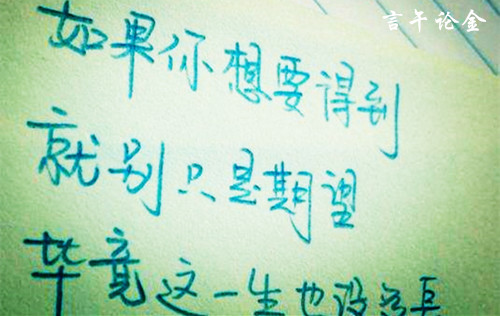 言午论金
如果你想要得到
就别只是期望
毕竟这一生也没多长